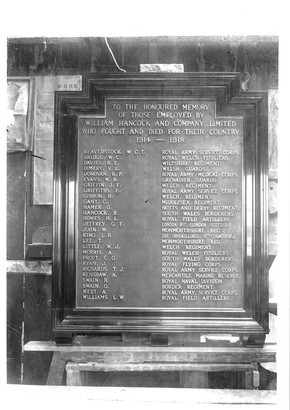 WORK
TO THE HONOURED MEMORY
OF THOSE EMPLOYED BY
WILLIAM HANCOCK AND COMPANY LIMITED
WHO FOUGHT AND DIED FOR THEIR COUNTRY
1914 — 1918
BEAVERSTOCK, W.C.T. ROYAL ARMY SERVICE CORPS.
BRIDGE, W.C. ROYAL WELCH FUSILIERS.
DAVIES, R.L. WILTSHIRE REGIMENT.
V.L. WELSH GUARDS.
DONOVAN, R.P. ROYAL ARMY MEDICAL CORPS.
EVANS, W.R. GRENADIER GUARDS.
GRIFFIN, J.F. WELCH REGIMENT.
GRIFFITHS, E. ROYAL ARMY SERVICE CORPS.
GIBBON, H. WELCH REGIMENT.
GANT, C. MIDDLESEX REGIMENT.
HAMER, G. NOTTS AND DERBY REGIMENT.
HANCOCK, B. SOUTH WALES BORDERERS
HOWES, R.L. ROYAL FIELD ARTILLERY.
JEFFREY, G.F. LONDON RGT. (LONDON SCOTTISH)
JOHN, W. MONMOUTHSHIRE REGT.
KING, L.R. THE INNISKILLINGS,
LEE, T. MONMOUTHSHIRE REGT.
LITTLE, W.J. WELCH REGIMENT.
MORRIS, A. ROYAL WELCH FUSILIERS.
PROUT, C.G. SOUTH WALES BORDERERS
RYAN, J. ROYAL FLYING CORPS.
RICHARDS, T.J. ROYAL ARMY SERVICE CORPS.
RENSHAW, A. MERCANTILE MARINE RESERVE.
SWAIN, H. ROYAL NAVAL DIVISION.
SWAIN, G. BORDER REGIMENT.
WEST, A. ROYAL ARMY SERVICE CORPS.
WILLIAMS, L.W. ROYAL FIELD ARTILLERY.